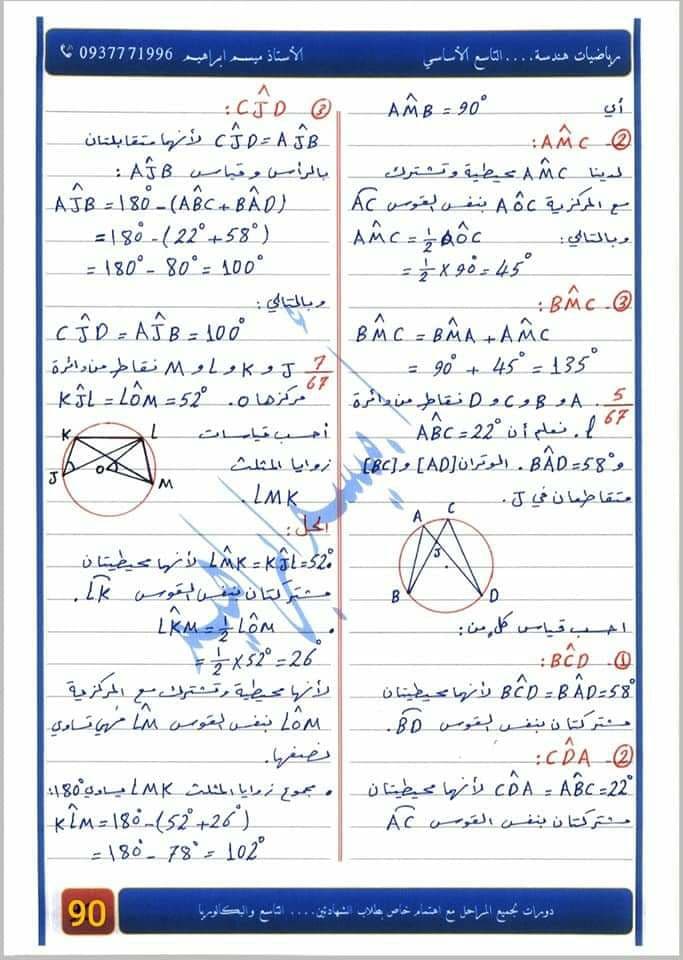 رياضيات هندسة.... التاسع الأساسي
الأستاذ ميسم ابراهيم 0937771996
أي AM̂B = 90°
② AM̂C:
لدينا AM̂C محيطية وتشترك
مع المركزية AÔC بنفس القوس AC
وبالتالي: AM̂C = ½ AÔC
= ½ × 90° = 45°
③ BM̂C:
BM̂C = BM̂A + AM̂C
= 90° + 45° = 135°
5/67 A و B و C و D نقاط من دائرة
ℓ. نعلم أن AB̂C = 22°
و BÂD = 58°. الوتران [AD] و [BC]
متقاطعان في J.
A C
J
B D
احسب قياس كل من:
① BĈD:
BĈD = BÂD = 58° لأنها محيطيتان
مشتركتان بنفس القوس BD.
② CD̂A:
CD̂A = AB̂C = 22° لأنها محيطيتان
مشتركتان بنفس القوس AC
③ CĴD:
CĴD = AĴB لأنها متقابلتان
بالرأس وقياس AĴB:
AĴB = 180° - (AB̂C + BÂD)
= 180° - (22° + 58°)
= 180° - 80° = 100°
وبالتالي:
CĴD = AĴB = 100°
7/67 J و K و L و M نقاط من دائرة
مركزها O. KĴL = LÔM = 52°
احسب قياسات
زوايا المثلث
LMK.
K L
J O
M
الحل:
LM̂K = KĴL = 52° لأنها محيطيتان
مشتركتان بنفس القوس LK.
• LK̂M = ½ LÔM
= ½ × 52° = 26°
لأنها محيطية وتشترك مع المركزية
LÔM بنفس القوس LM فهي تساوي
نصفها.
• مجموع زوايا المثلث LMK يساوي 180°:
KL̂M = 180° - (52° + 26°)
= 180° - 78° = 102°
دورات لجميع المراحل مع اهتمام خاص بطلاب الشهادتين.... التاسع والبكالوريا
90